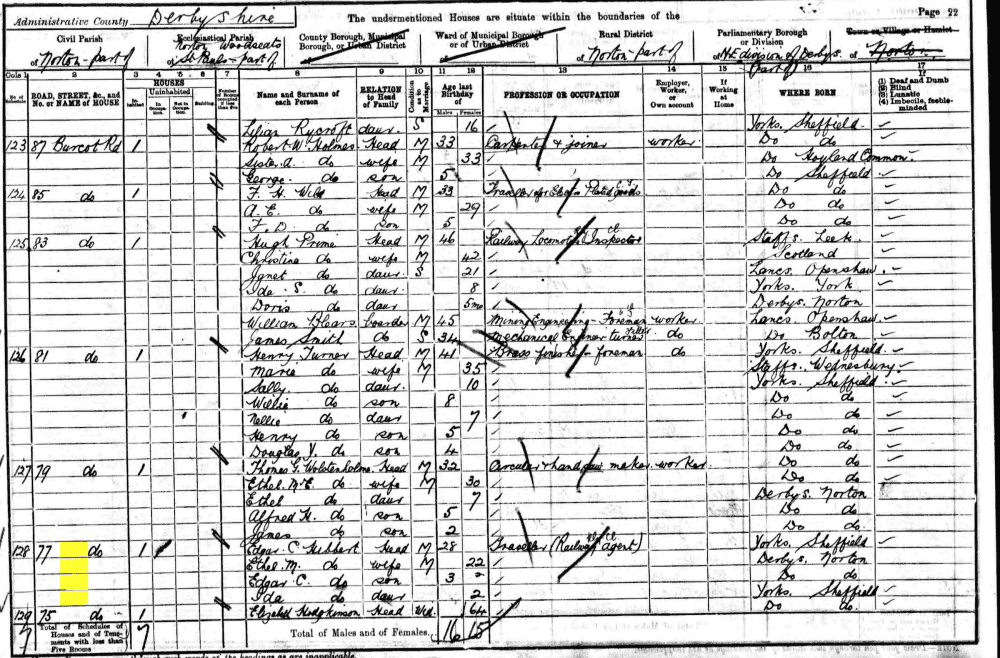 Administrative County Derbyshire The undermentioned Houses are situate within the boundaries of the Page 22
Civil Parish Ecclesiastical Parish County Borough, Municipal Borough, or Urban District Ward of Municipal Borough or of Urban District Rural District Parliamentary Borough or Division Town or Village or Hamlet
of Norton-part of of Norton Woodseats St Pauls-part of of Norton-part of of N.E. division of Derbys. Part of of Norton
Cols 1 2 3 4 5 6 7 8 9 10 11 12 13 14 15 16 17
No. of ROAD, STREET, &c., and No. or NAME of HOUSE HOUSES Inhabited Uninhabited In Occupation Not in Occupation Building Name and Surname of each Person RELATION to Head of Family Condition as to Marriage Age last Birthday of Males Females PROFESSION OR OCCUPATION Employer, Worker, or Own account If Working at Home WHERE BORN If (1) Deaf and Dumb (2) Blind (3) Lunatic (4) Imbecile, feeble-minded
Lilian Rycroft daur. S 16 Yorks. Sheffield
123 87 Burcot Rd 1 Robert W. Holmes Head M 33 Carpenter & joiner worker Do do
do wife M 33 Do Hoyland Common
George do son 5 Do Sheffield
124 85 do 1 F. H. Head M 33 Traveller Plated Goods Do do
A. E. do wife M 29 Do do
F. D. do son 5 Do do
125 83 do 1 Hugh Prime Head M 46 Railway Locomotive Inspector Staffs. Leek
Christina do wife M 42 Scotland
Janet do daur. S 21 Lancs. Openshaw
Ida S. do daur 8 Yorks. York
Doris do daur 5mo Derbys. Norton
William Blears boarder M 45 Mining Engineering - Foreman worker Lancs. Openshaw
James Smith do S 34 Mechanical Engineer turner do Do Bolton
126 81 do 1 Henry Turner Head M 41 Brass finisher foreman do Yorks. Sheffield
Marie do wife M 35 Staffs. Wednesbury
Sally do daur. 10 Yorks. Sheffield
Willie do son 8 Do do
Nellie do daur 7 Do do
Henry do son 5 Do do
Douglas Y. do son 4 Do do
127 79 do 1 Thomas G. Wolstenholme Head M 32 Circular & hand saw maker worker Do do
Ethel M. E. do wife M 30 Do do
Ethel do daur 7 Derbys. Norton
Alfred H. do son 5 Do do
James do son 2 Do do
128 77 do 1 Edgar C. Hibbert Head M 28 Traveller (Railway agent) Yorks. Sheffield
Ethel M. do wife M 22 Derbys. Norton
Edgar C. do son 3 Do do
Ida do daur 2 Yorks. Sheffield
129 75 do 1 Elizabeth Hodgkinson Head Wid. 64 Do do
7 Total of Schedules of Houses and of Tenements with less than Five Rooms 7 Total of Males and of Females... 16 15